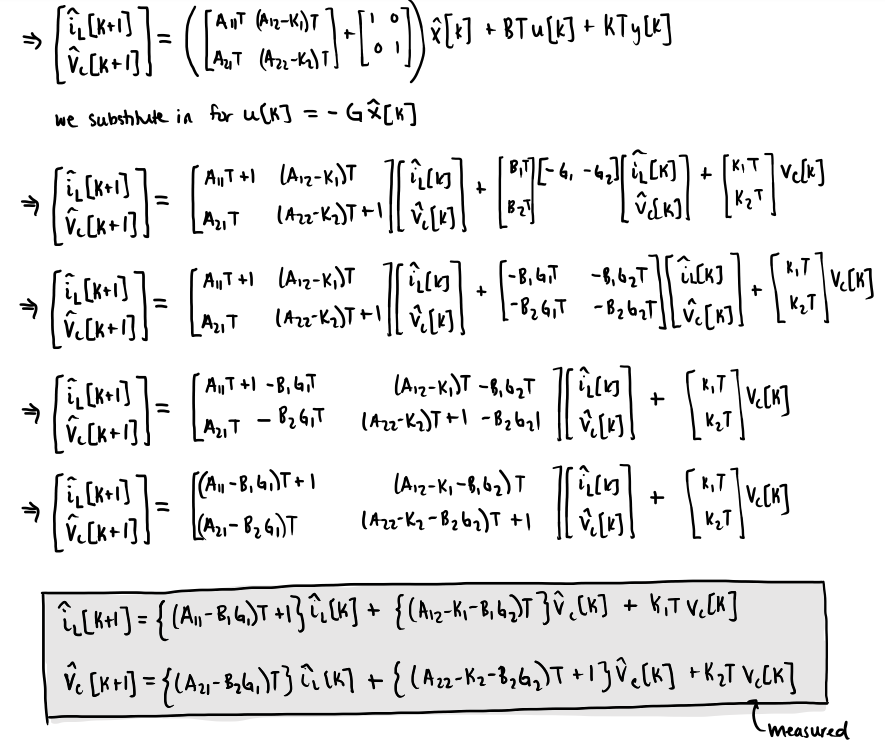 ⇒ [î_L[k+1]; v̂_c[k+1]] = ([A₁₁T (A₁₂-K₁)T; A₂₁T (A₂₂-K₂)T] + [1 0; 0 1]) x̂[k] + BTu[k] + KTy[k]
we substitute in for u[k] = -Gx̂[k]
⇒ [î_L[k+1]; v̂_c[k+1]] = [A₁₁T+1 (A₁₂-K₁)T; A₂₁T (A₂₂-K₂)T+1][î_L[k]; v̂_c[k]] + [B₁T; B₂T][-G₁ -G₂][î_L[k]; v̂_c[k]] + [K₁T; K₂T] v_c[k]
⇒ [î_L[k+1]; v̂_c[k+1]] = [A₁₁T+1 (A₁₂-K₁)T; A₂₁T (A₂₂-K₂)T+1][î_L[k]; v̂_c[k]] + [-B₁G₁T -B₁G₂T; -B₂G₁T -B₂G₂T][î_L[k]; v̂_c[k]] + [K₁T; K₂T] v_c[k]
⇒ [î_L[k+1]; v̂_c[k+1]] = [A₁₁T+1-B₁G₁T (A₁₂-K₁)T-B₁G₂T; A₂₁T-B₂G₁T (A₂₂-K₂)T+1-B₂G₂T][î_L[k]; v̂_c[k]] + [K₁T; K₂T] v_c[k]
⇒ [î_L[k+1]; v̂_c[k+1]] = [(A₁₁-B₁G₁)T+1 (A₁₂-K₁-B₁G₂)T; (A₂₁-B₂G₁)T (A₂₂-K₂-B₂G₂)T+1][î_L[k]; v̂_c[k]] + [K₁T; K₂T] v_c[k]
î_L[k+1] = {(A₁₁-B₁G₁)T+1} î_L[k] + {(A₁₂-K₁-B₁G₂)T} v̂_c[k] + K₁T v_c[k]
v̂_c[k+1] = {(A₂₁-B₂G₁)T} î_L[k] + {(A₂₂-K₂-B₂G₂)T+1} v̂_c[k] + K₂T v_c[k]
measured